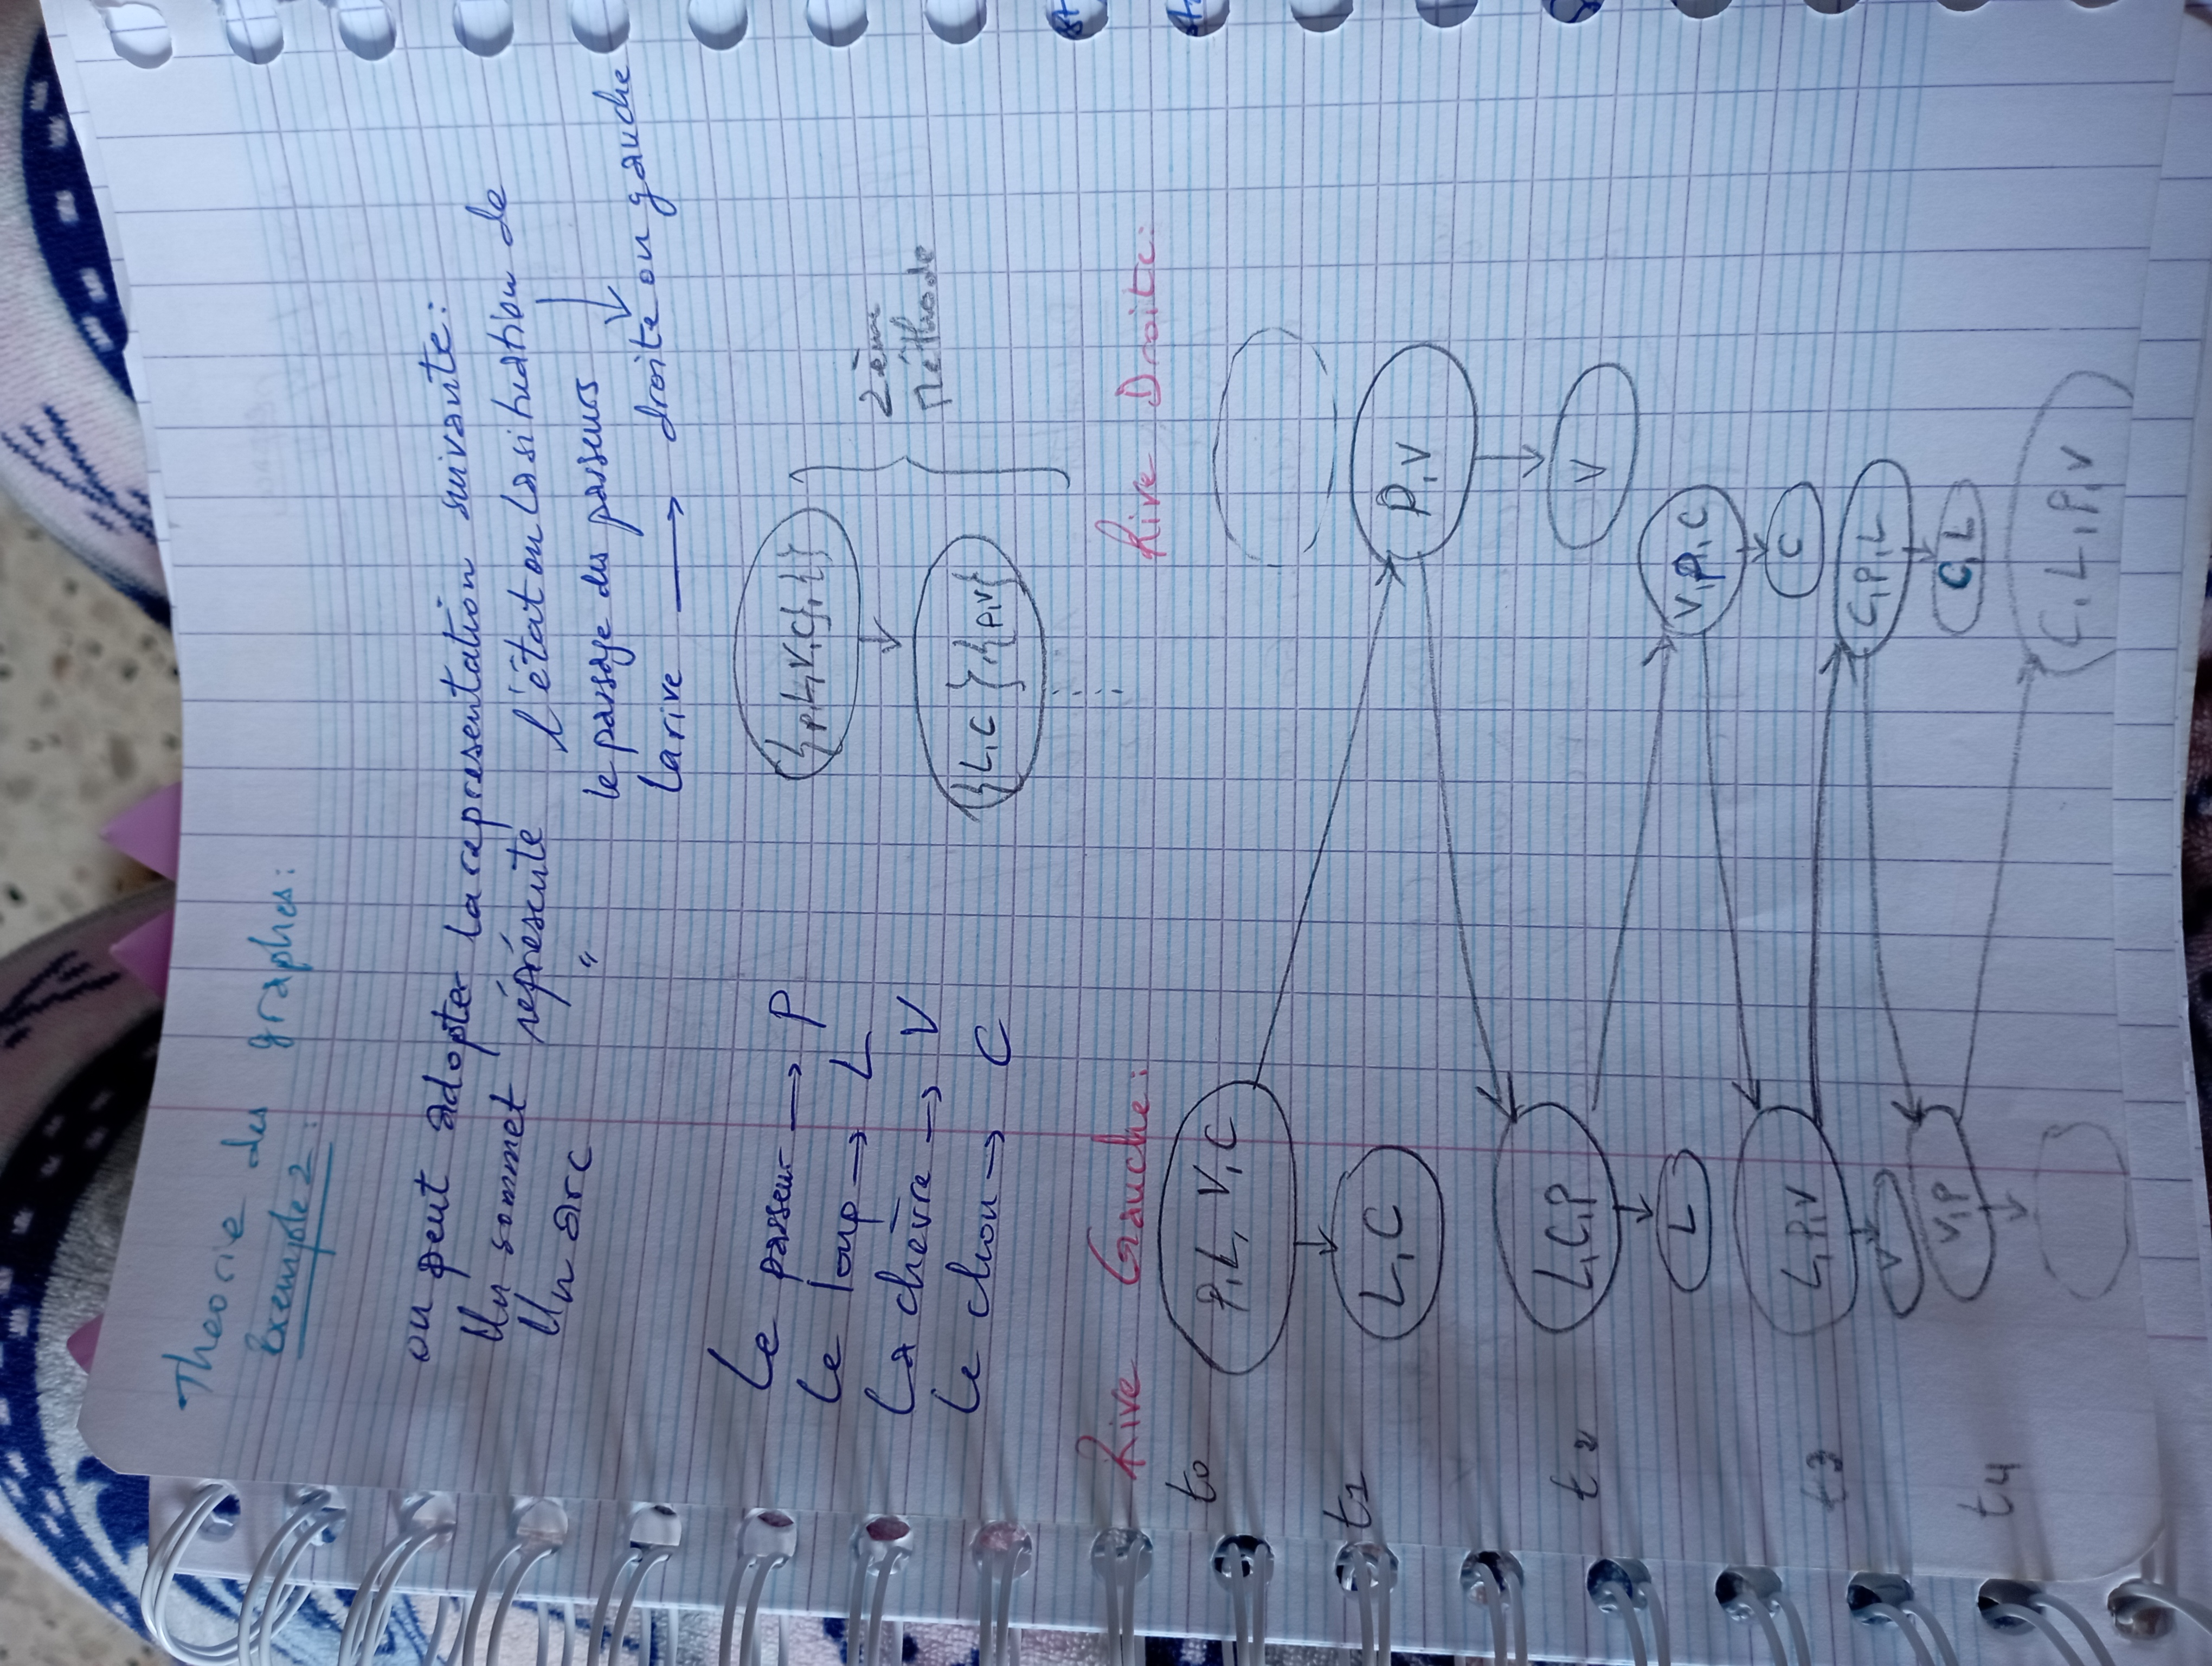 Theorie des graphes:
Exemple 2:
on peut adopter la representation suivante:
Un sommet réprésente l'état ou la situation de
Un arc " le passage des passeurs
la rive → droite ou gauche
Le passeur → P
Le loup → L
La chèvre → V
Le chou → C
{P,L,V,C},{}
{L,C},{P,V}
2ème
Méthode
Rive Gauche: Rive Droite:
t0 P,L,V,C
t1 L,C P,V
L,C,P
t2 V
L V,P,C
L,P,V C
t3 C,P,L
V
V,P C,L
t4
C,L,P,V